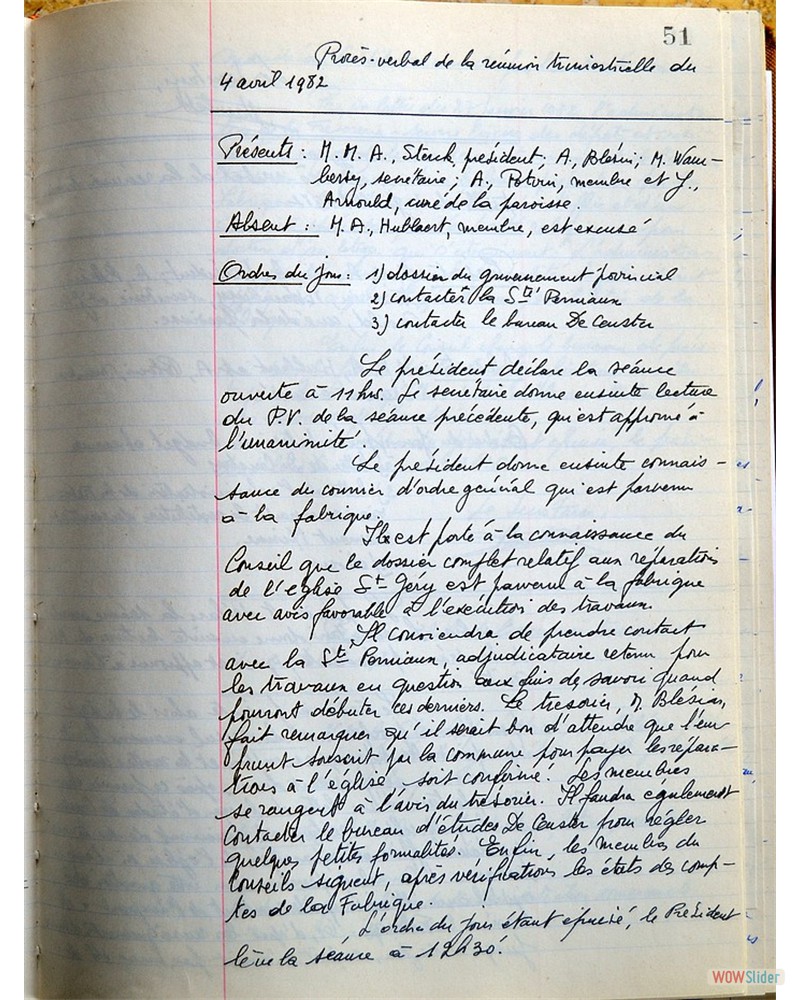 51
Procès-verbal de la réunion trimestrielle du
4 avril 1982
Présents : M.M. A., Sterck, président; A., Blésin; M. Wam-
bersy, secrétaire; A., Potvin, membre et J.,
Arnould, curé de la paroisse.
Absent : M. A., Hublaert, membre, est excusé
Ordres du jour: 1) dossier du gouvernement provincial
2) contacter la Sté Perniaux
3) contacter le bureau De Ceuster
Le président déclare la séance
ouverte à 11hrs. Le secrétaire donne ensuite lecture
du P.V. de la séance précédente, qui est approuvé à
l'unanimité.
Le président donne ensuite connais-
sance du courrier d'ordre général qui est parvenu
à la fabrique.
Il est porté à la connaissance du
Conseil que le dossier complet relatif aux réparations
de l'église St Géry est parvenu à la fabrique
avec avis favorable à l'exécution des travaux.
Il conviendra de prendre contact
avec la Sté Perniaux, adjudicataire retenu pour
les travaux en question aux fins de savoir quand
pourront débuter ces derniers. Le trésorier, M. Blésin,
fait remarquer qu'il serait bon d'attendre que l'em-
prunt souscrit par la commune pour payer les répara-
tions à l'église soit confirmé. Les membres
se rangent à l'avis du trésorier. Il faudra également
contacter le bureau d'études De Ceuster pour régler
quelques petites formalités. Enfin, les membres du
Conseils signent, après vérifications les états des comp-
tes de la Fabrique.
L'ordre du jour étant épuisé, le Président
lève la séance à 12h30.
WOWSlider